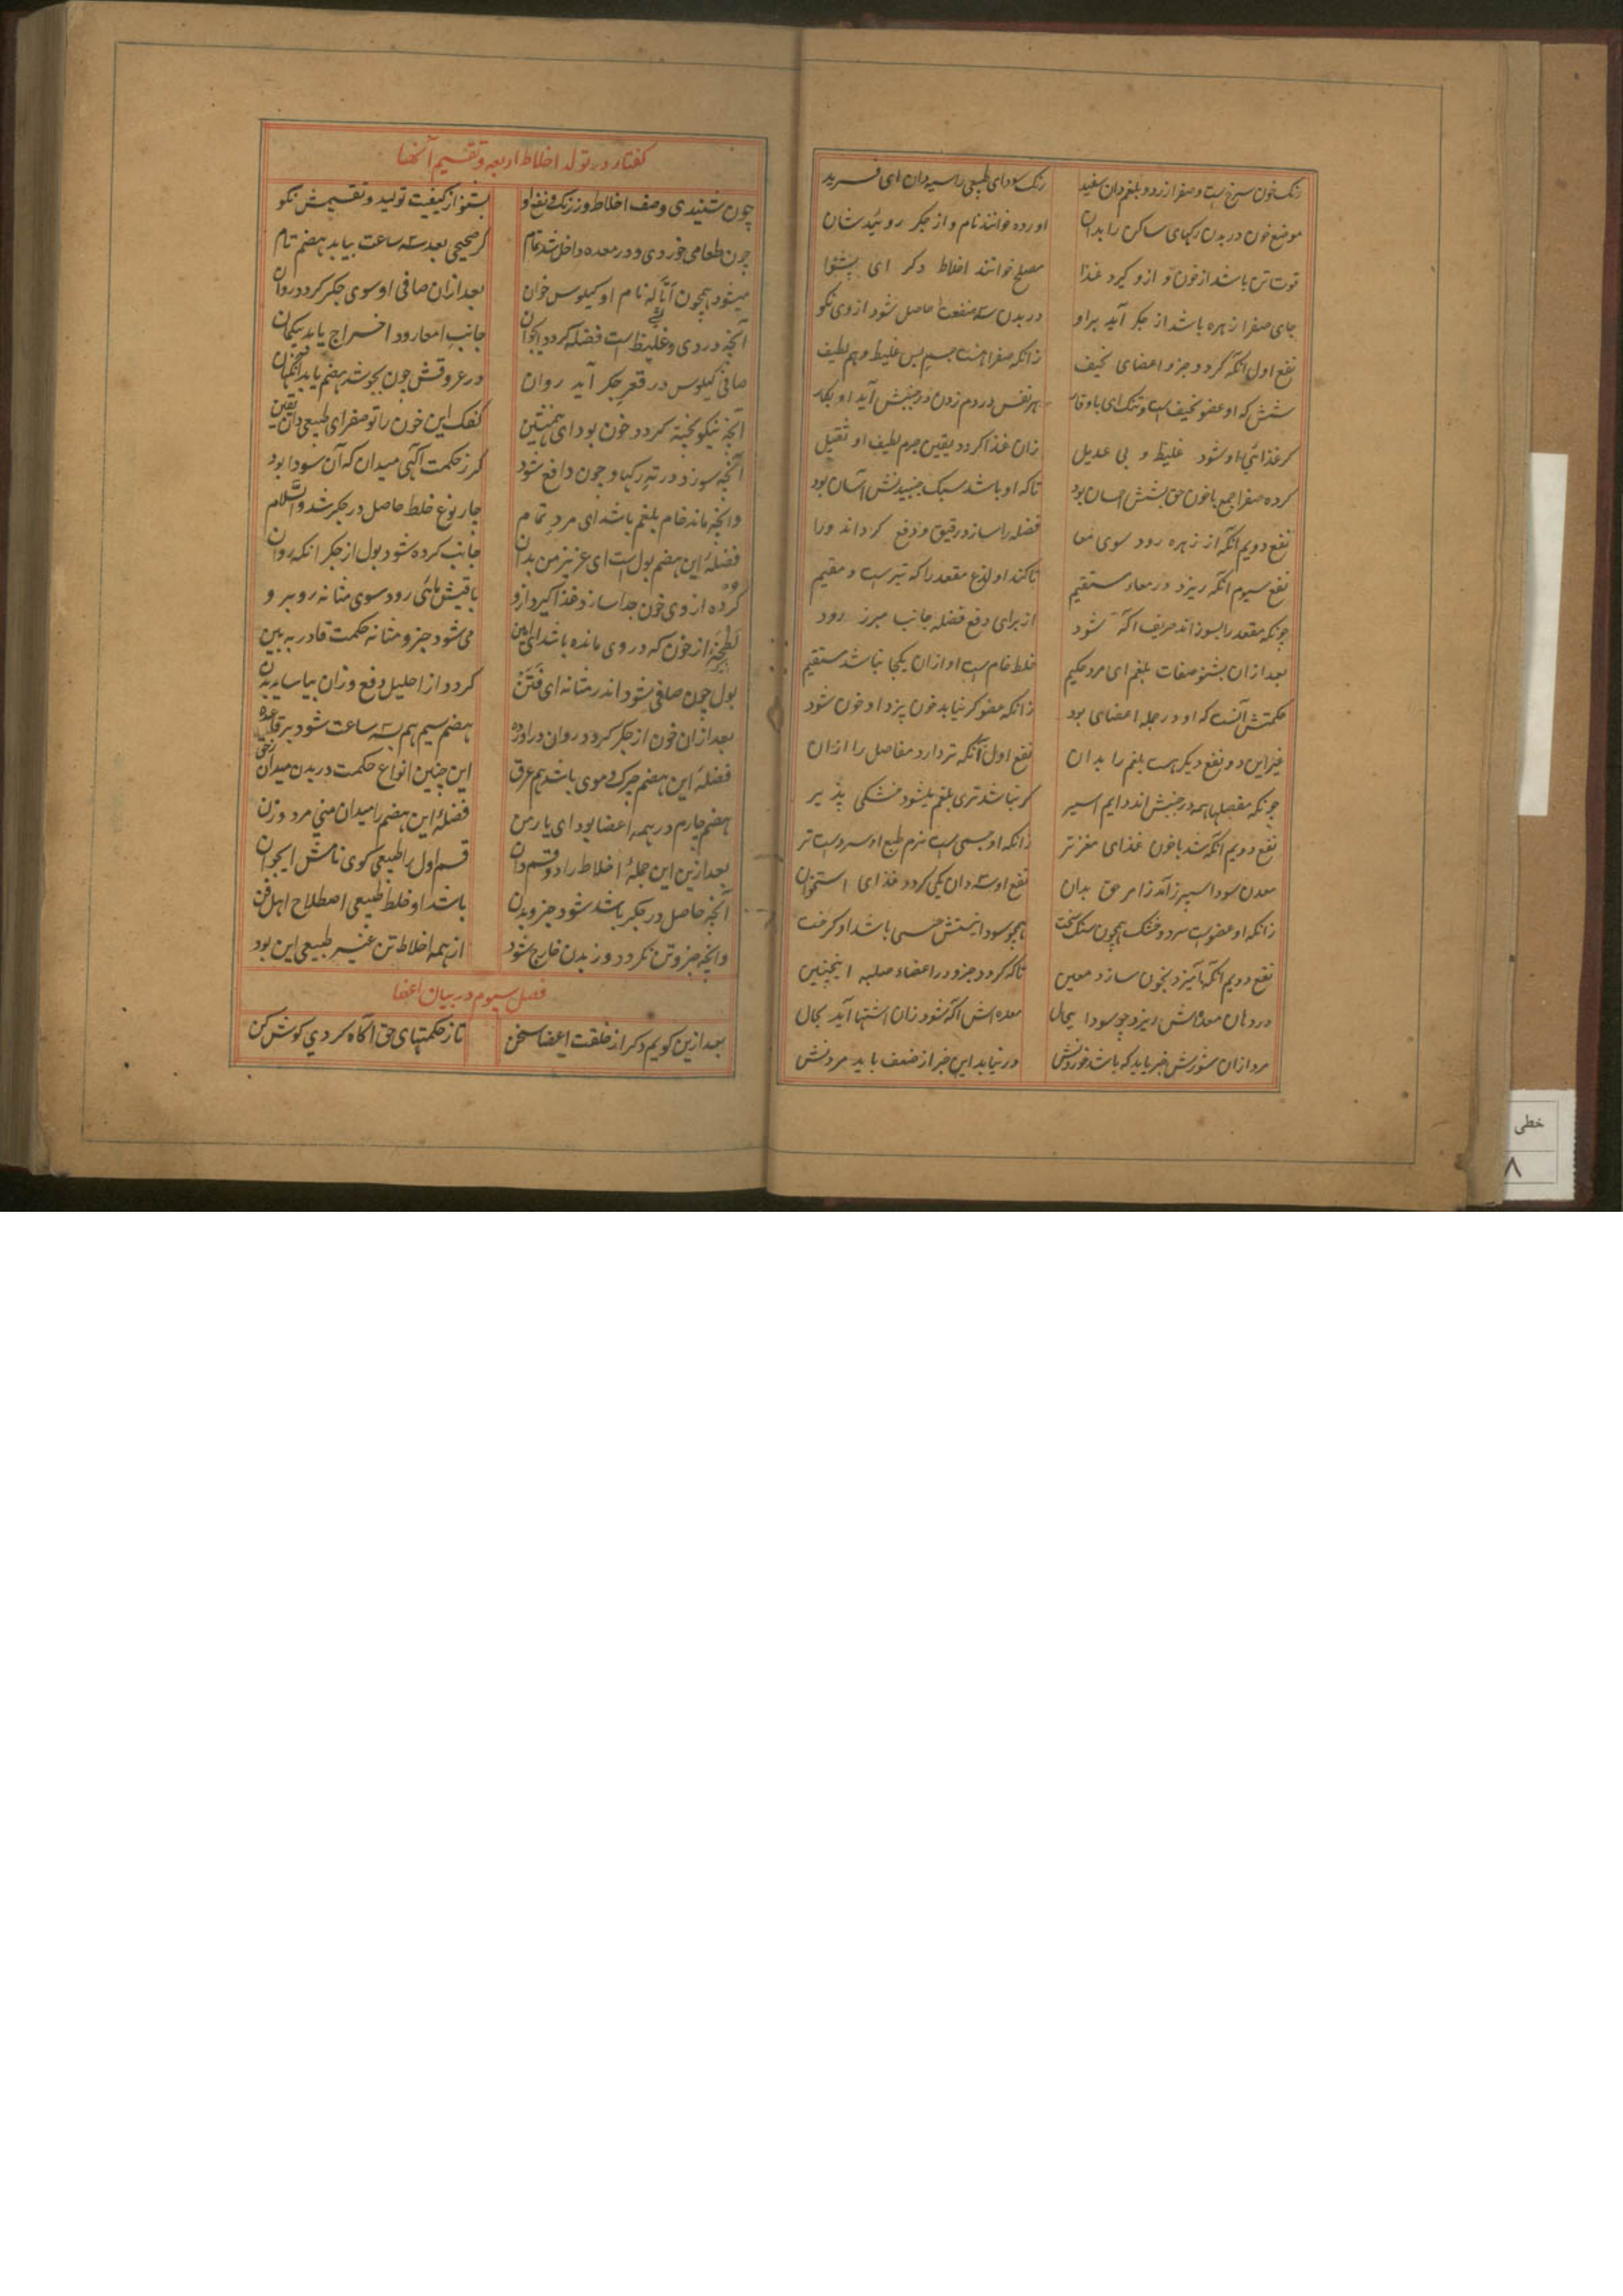 رنک خون سرخ است و صفرا زرد و بلغم دان سفید رنک سودای طبیعی را سیه دان ای فرید
موضع خون در بدن رکهای ساکن را بدان اورده خوانند نام و از جکر روئیدشان
قوت تن باشد از خون و ازو کیرد غذا مصلح خوانند اخلاط دکر ای پیشوا
جای صفرا زهره باشد از جکر آید برو در بدن سه منفعت حاصل شود از وی نکو
نفع اول آنکه کردد جزو اعضای نحیف زانکه صفرا هست جسم بس غلیظ و هم لطیف
شش که او عضو نحیف است و تنک ای باوقار بهر نفس در دم زدن در جنبش آید او بکار
کر غذائی او شود غلیظ و بی عدیل زان غذا کردد یقین جرم لطیف او ثقیل
کرده صفرا جمع با خون حق بشش احسان بود تا که او باشد سبک جنبیدنش آسان بود
نفع دویم آنکه از زهره رود سوی فضله را سازد رقیق و دفع کرداند ورا
نفع سیوم آنکه ریزد در معاء مستقیم تا کند او لذع مقعد را که تیز است و مقیم
چونکه مقعد را بسوزاند حریف آکه شود از برای دفع فضله جانب مبرز رود
بعد ازان بشنو صفات بلغم ای مرد حکیم خلط خام است او ازان یکجا نباشد مستقیم
حکمتش آنست که او در جمله اعضای بود زانکه عضو کر نیابد خون پزد او خون شود
غیر این دو نفع دیکر هست بلغم را بدان نفع اول آنکه تر دارد مفاصل را ازان
چونکه مفصلها همه در جنبش اند دایم اسیر کر نباشد تری بلغم شود خشکی پذیر
نفع دویم آنکه شد با خون غذای مغز تر زانکه او جسمی است نرم طبع او سرد است تر
معدن سودا سپرز آمد ز امر حق بدان نفع او سه دان یکی کردد غذای استخوان
زانکه او عضویست سرد و خشک همچون سنک سخت همچو سودا جسمی باشد او کرخت
نفع دویم آنکه آمیزد بخون سازد معین تا که کردد جزو در اعضاء صلبه اینچنین
در دهان معده اش ریزد چو سودا معده اش آکه شود زان اشتها آید بحال
مرد ازان سوزش خبر یابد که باشد خوردنش در نیابد این خبر از ضعف باید مردنش
کفتار در تولد اخلاط اربعه و تقسیم آنها
چون شنیدی وصف اخلاط و ز رنک و نفع او بشنو از کیفیت تولید و تقسیمش نکو
چون طعامی خوردی و در معده داخل شد تمام کر صحیحی بعد سه ساعت بیابد هضم تام
میشود همچون نام او کیلوس خوان بعد ازان صافی او سوی جکر کردد روان
آنچه دردی و غلیظ است فضله کردد جانب امعا رود اخراج یابد بیکمان
صافی کیلوس در قعر جکر آید روان در عروقش چون بجوشد هضم یابد
آنچه نیکو پخته کردد خون بود ای همنشین کفک این خون را تو صفرای طبیعی دان یقین
آنچه سوزد در ته رکها و چون دافع شود کر ز حکمت آکهی میدان که آن سودا بود
وانچه ماند خام بلغم باشد ای مرد تمام چار نوع خلط حاصل در جکر شد والسلام
فضلهٔ این هضم بول است ای عزیز من بدان جانب کرده شود بول از جکر انکه روان
کرده از وی خون جدا سازد غذا کیرد ازو باقیش مائی رود سوی مثانه رو برو
از خون که در وی مانده باشد می شود جزو مثانه حکمت قادر به بین
بول چون صافی شود اندر مثانه ای فتن کردد از احلیل دفع و زان بیاساید بدن
بعد ازان خون از جکر کردد روان در اورده هضم سیم هم بسه ساعت شود بر قاعده
فضلهٔ این هضم چرک و موی باشد هم عرق این چنین انواع حکمت در بدن میدان ز حق
هضم چارم در همه اعضا بود ای یار من فضلهٔ این هضم را میدان منی مرد و زن
بعد ازین این جملهٔ اخلاط را دو قسم دان قسم اول را طبیعی کوی نامش ای جوان
آنچه حاصل در جکر باشد شود جزو بدن باشد او خلط طبیعی اصطلاح اهل فن
وانچه جزو تن نکردد وز بدن خارج شود از همه اخلاط تن غیر طبیعی این بود
فصل سیوم در بیان اعضا
بعد ازین کویم دکر از خلقت اعضا سخن تا ز حکمتهای حق آکاه کردی کوش کن
خطی
۸